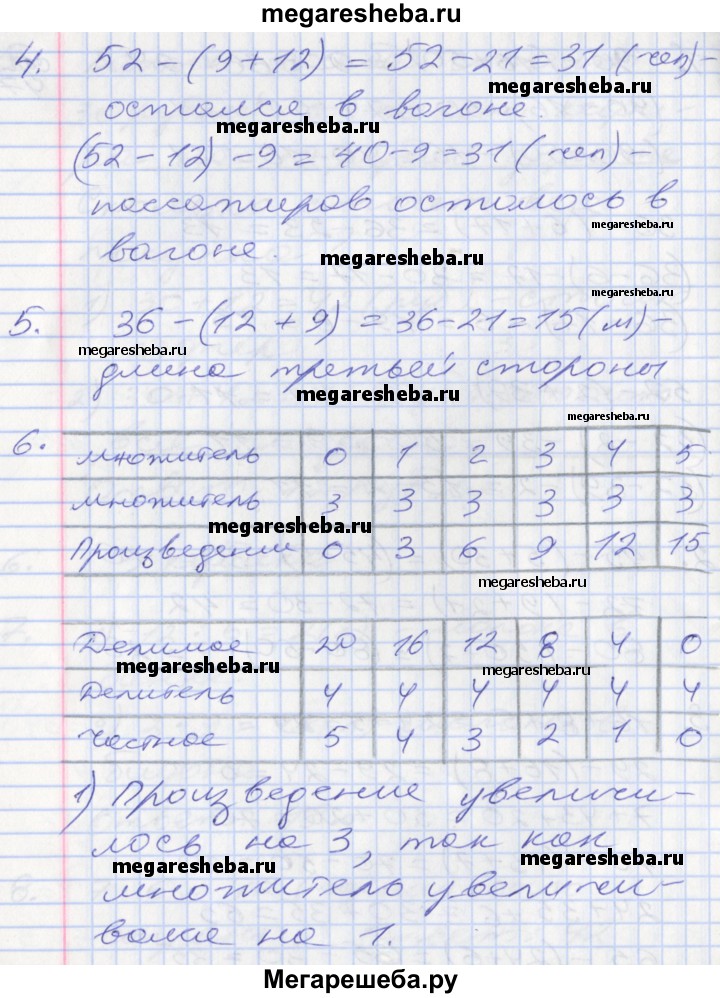 megaresheba.ru
4. 52 - (9 + 12) = 52 - 21 = 31 (чел) -
megaresheba.ru
остался в вагоне.
megaresheba.ru
(52 - 12) - 9 = 40 - 9 = 31 (чел) -
пассажиров осталось в
megaresheba.ru
вагоне.
megaresheba.ru
5. 36 - (12 + 9) = 36 - 21 = 15 (м) -
megaresheba.ru
megaresheba.ru
длина третьей стороны
megaresheba.ru
megaresheba.ru
6. множитель 0 1 2 3 4 5
множитель 3 3 3 3 3 3
megaresheba.ru
megaresheba.ru
Произведении 0 3 6 9 12 15
megaresheba.ru
Делимое 20 16 12 8 4 0
megaresheba.ru
megaresheba.ru
Делитель 4 4 4 4 4 4
Частное 5 4 3 2 1 0
1) Произведение увеличи-
лось на 3, так как
megaresheba.ru
megaresheba.ru
множитель увеличи-
вался на 1.
megaresheba.ru
Мегарешеба.ру